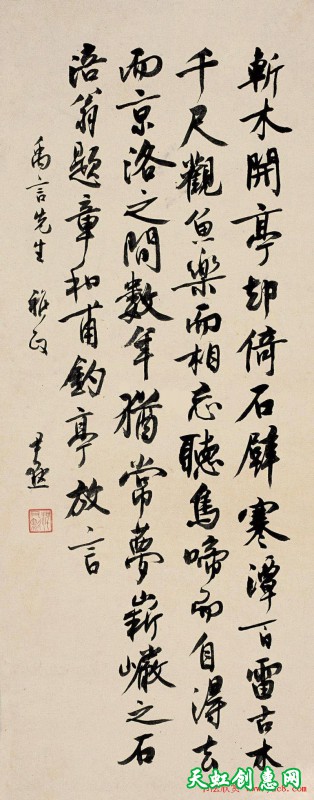 斬木開亭却倚石壁寒潭百雷古木
千尺觀魚樂而相忘聽鳥啼而自得去
而京洛之間數年猶常夢嶄巖之石
涪翁題章和甫釣亭放言
禹言先生 雅正
尹默
天虹创惠网